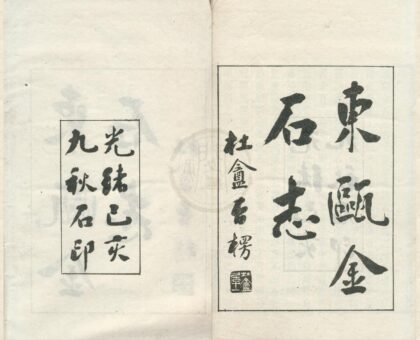 東甌金
石志
杜盦楞
光緒己亥
九秋石印